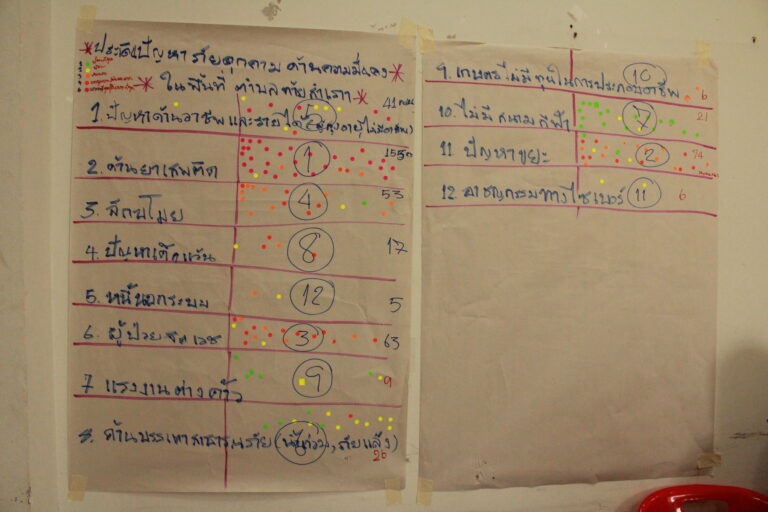 ประเด็นปัญหาภัยคุกคามด้านความมั่นคง
ในพื้นที่ ตำบลท้ายสำเภา
1. ปัญหาด้านอาชีพและรายได้ 41
2. ด้านยาเสพติด 1 155
3. ลักขโมย 4 53
4. ปัญหาเด็กแว้น 8 17
5. หนี้นอกระบบ 12 5
6. ผู้ป่วยจิตเวช 3 63
7 แรงงานต่างด้าว 9 9
8. ด้านบรรเทาสาธารณภัย (น้ำท่วม, ภัยแล้ง) 26
9. เกษตรไม่มีทุนในการประกอบอาชีพ 10 6
10. ไม่มีสนามกีฬา 7 21
11. ปัญหาขยะ 2 74
12. อาชญกรรมทางไซเบอร์ 11 6